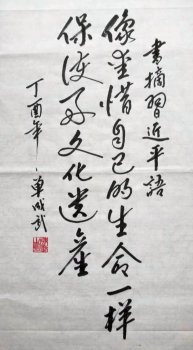 書摘習近平語
像愛惜自己的生命一樣
保護好文化遺產
丁酉年
單成武